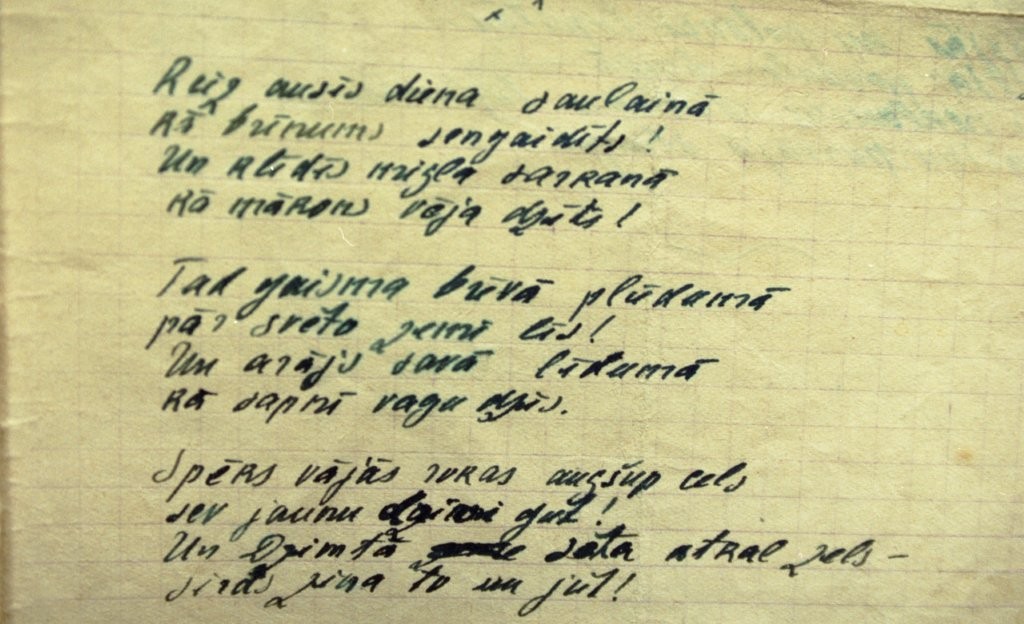 Reiz ausīs diena saulainā
kā brīnums sengaidīts!
Un klīdīs migla sarkanā
kā mākons vēja dzīts!
Tad gaisma brīvā plūdumā
pār svēto zemi līs!
Un arājs savā līdumā
kā sapnī vagu dzīs.
Spēks vājās rokas augšup cels
sev jaunu dzimi gūt!
Un Dzimtā sēta atkal zels –
sirds zina to un jūt!